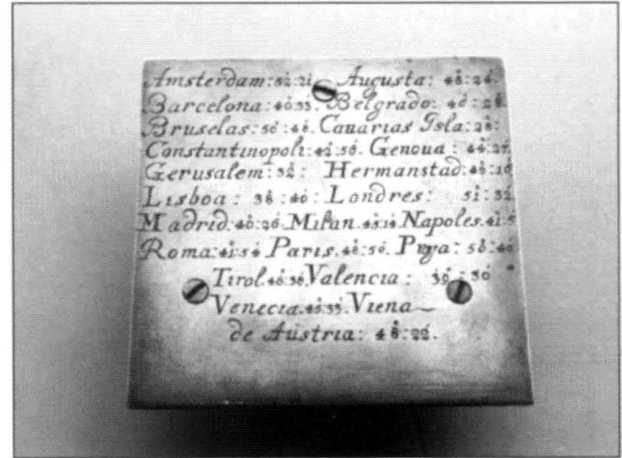 Amsterdam: 52:21. Augusta: 48:24.
Barcelona: 40:33. Belgrado: 40:28.
Bruselas: 50:48. Canarias Isla: 28:
Constantinopoli: 42:56. Genoua: 44:27.
Gerusalem: 32: Hermanstad: 46:16
Lisboa: 38:40: Londres: 51:32
Madrid: 40:26. Milan. 45:14 Napoles. 41:5
Roma: 41:54 Paris. 48:50. Pra͏ga: 50:40
Tirol. 46:36. Valencia: 39:30
Venecia. 45:33. Viena
de Austria: 48:22.